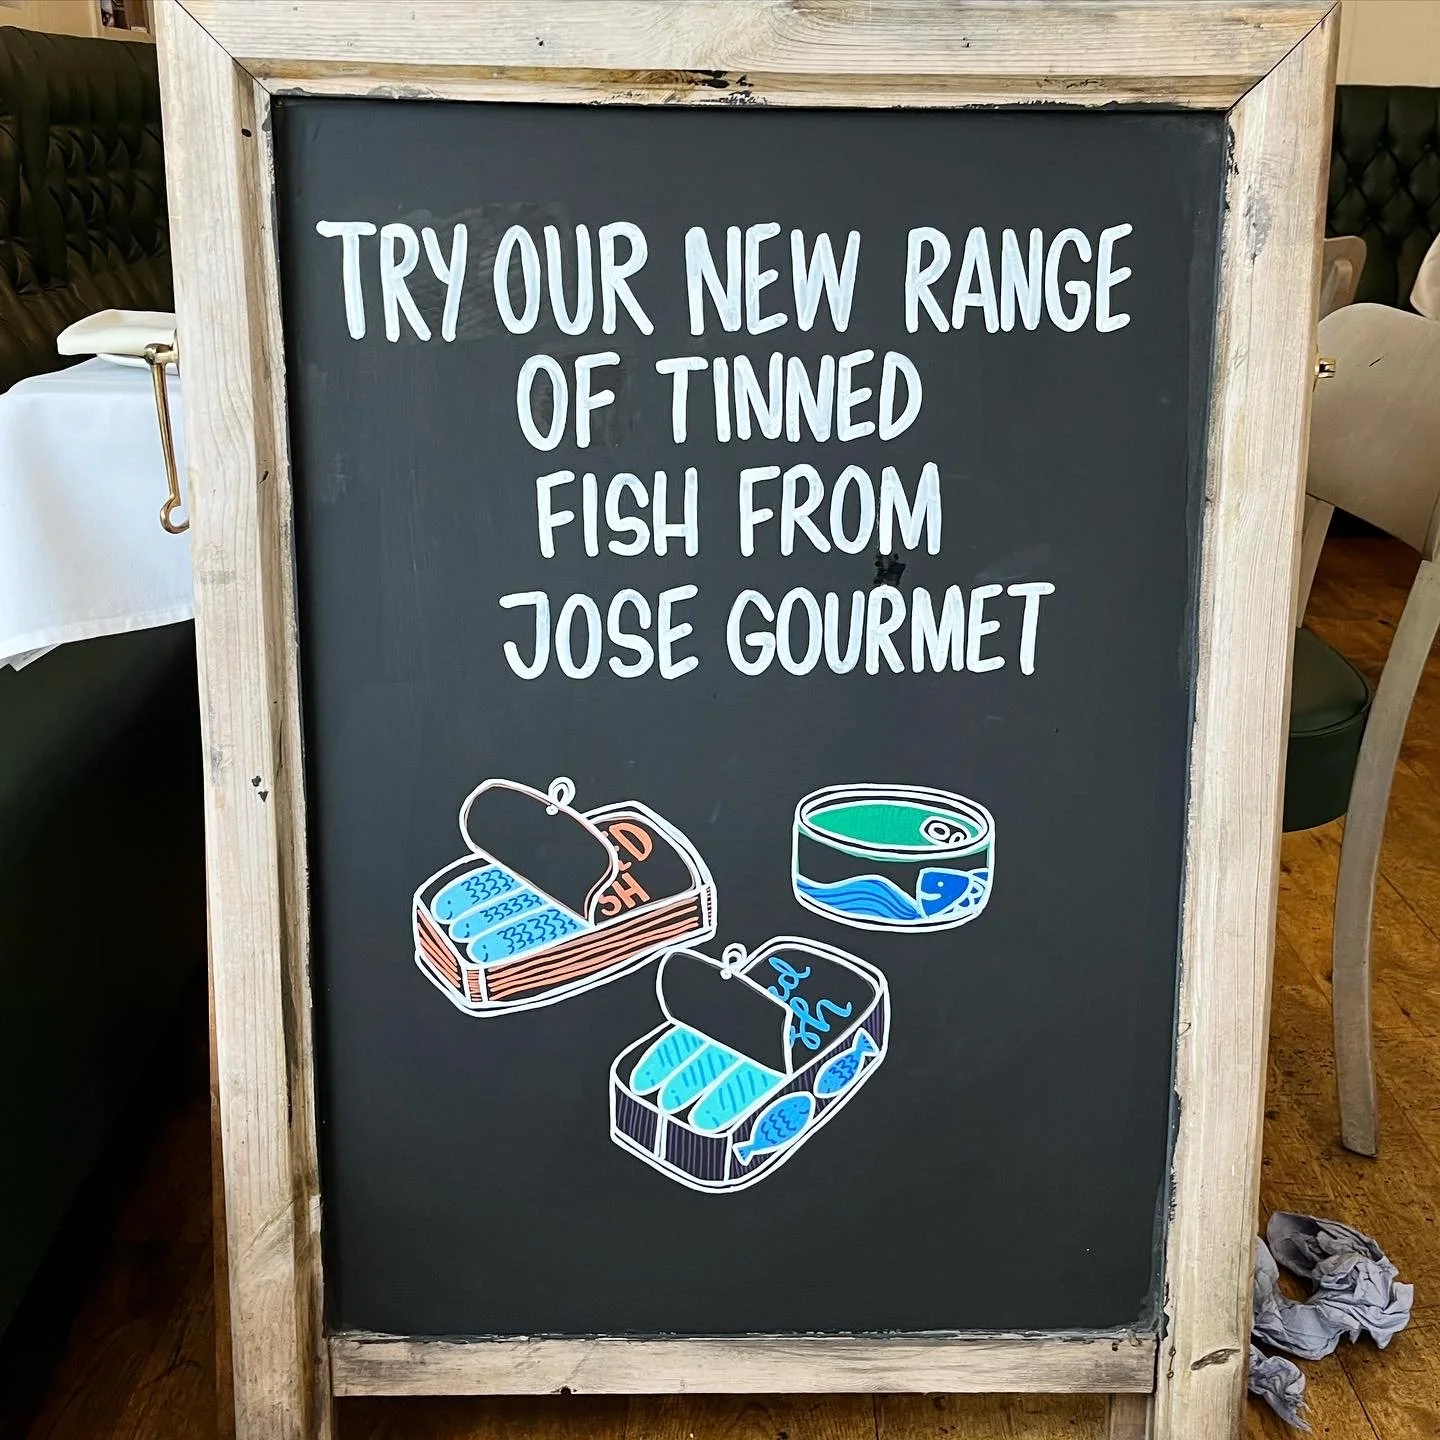 TRY OUR NEW RANGE
OF TINNED
FISH FROM
JOSE GOURMET
ED
SH
ed
sh